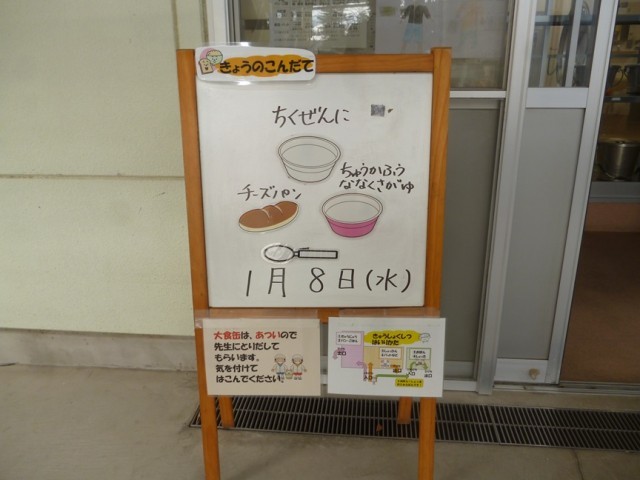 きょうのこんだて
ちくぜんに
ちゅうかふう
ななくさがゆ
チーズパン
1月8日(水)
大食缶は、あついので
先生にといだして
もらいます。
気を付けて
はこんでください。
きゅうしょくしつ
はいりかた